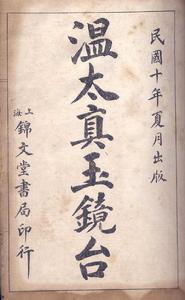 民國十年夏月出版
温太真玉鏡台
上海錦文堂書局印行